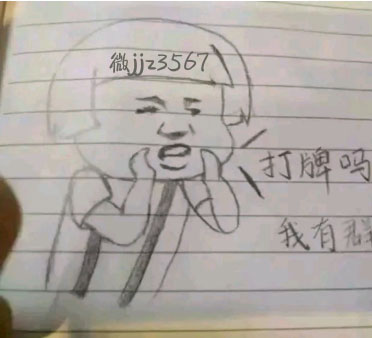 微jjz3567
打牌吗
我有群